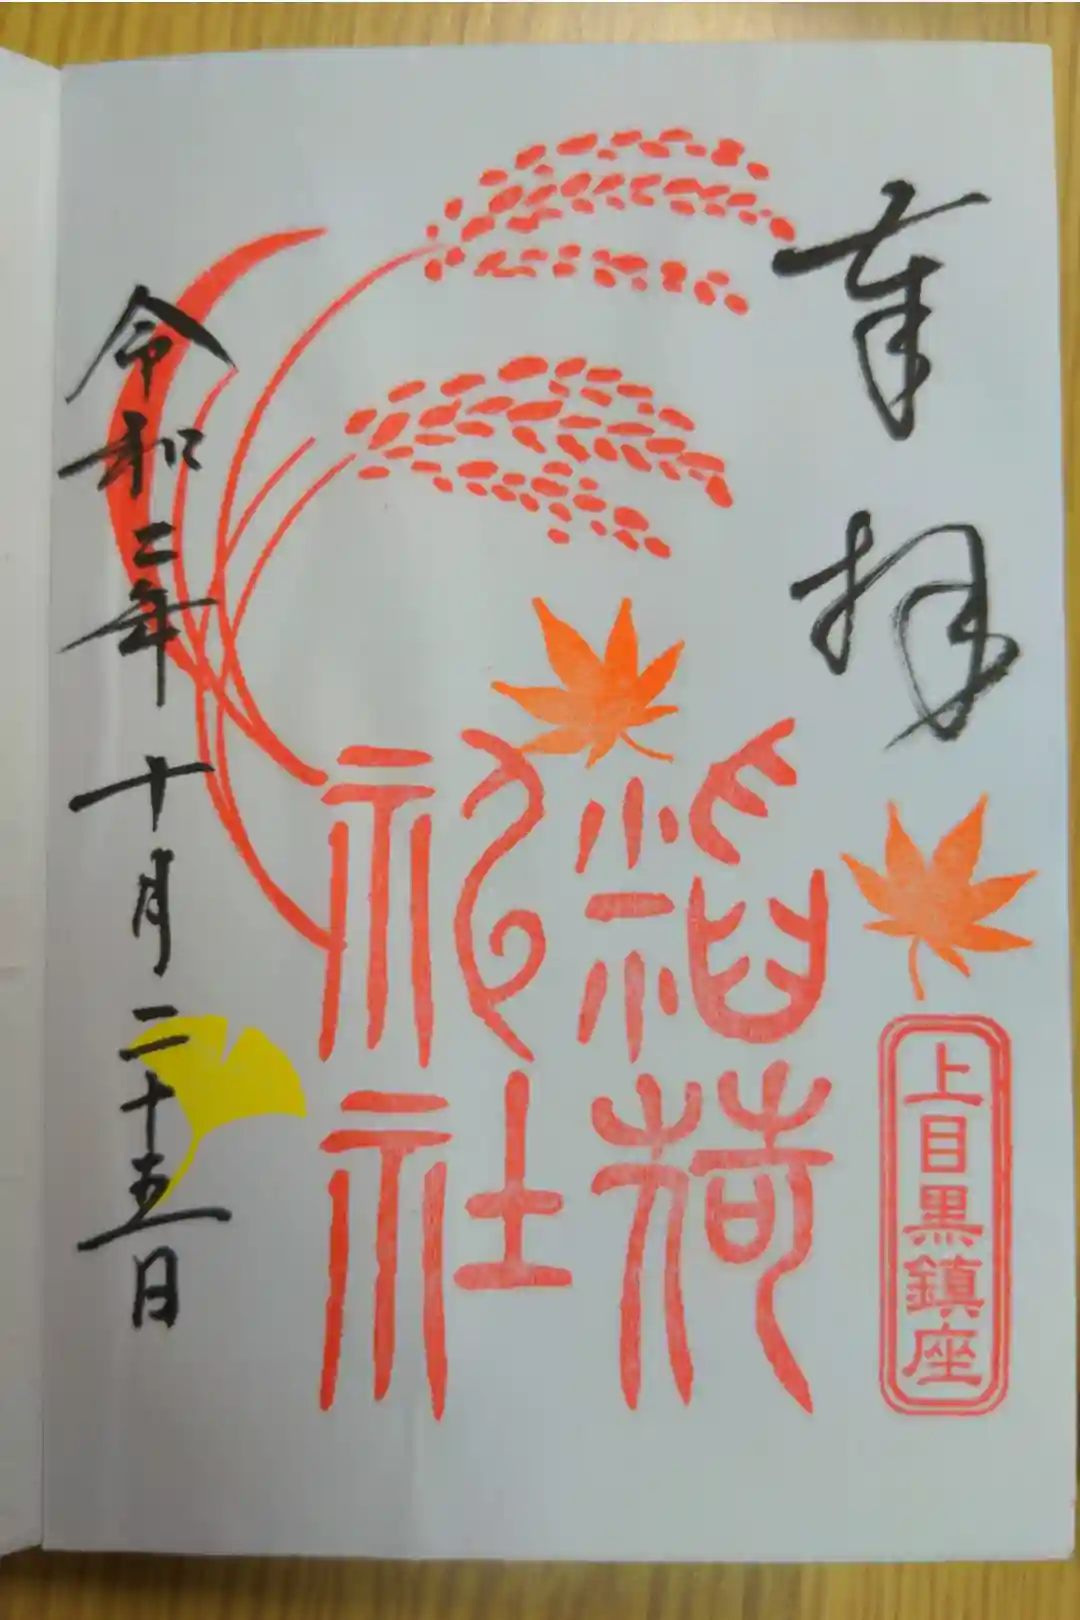 奉拝
上目黒鎮座
稲荷
神社
令和二年十月二十五日